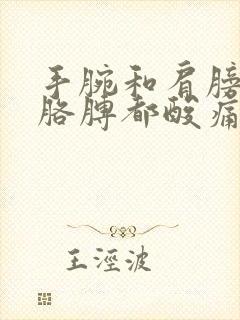 手腕和肩膀
胳膊都酸痛
王泾波